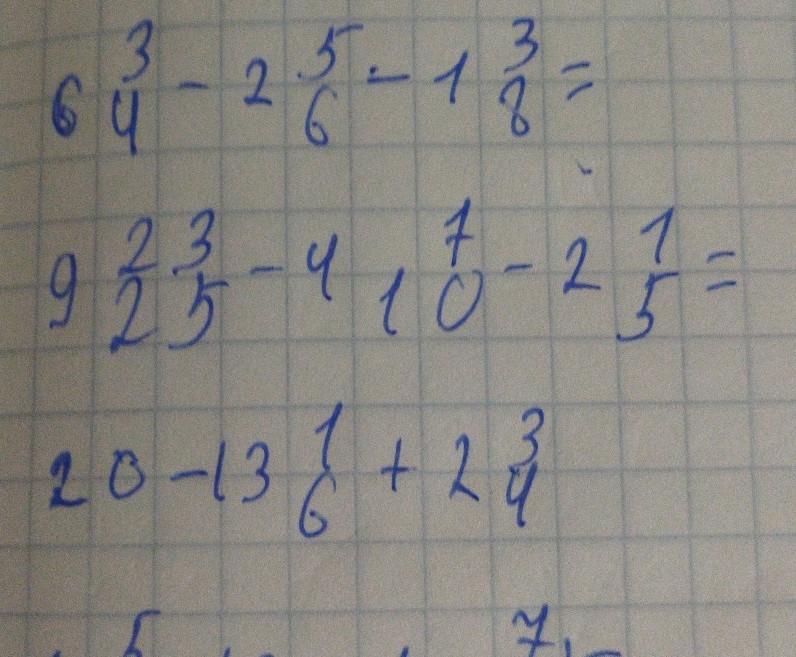 6 3/4 - 2 5/6 - 1 3/8 =
9 23/25 - 4 7/10 - 2 1/5 =
20 - 13 1/6 + 2 3/4